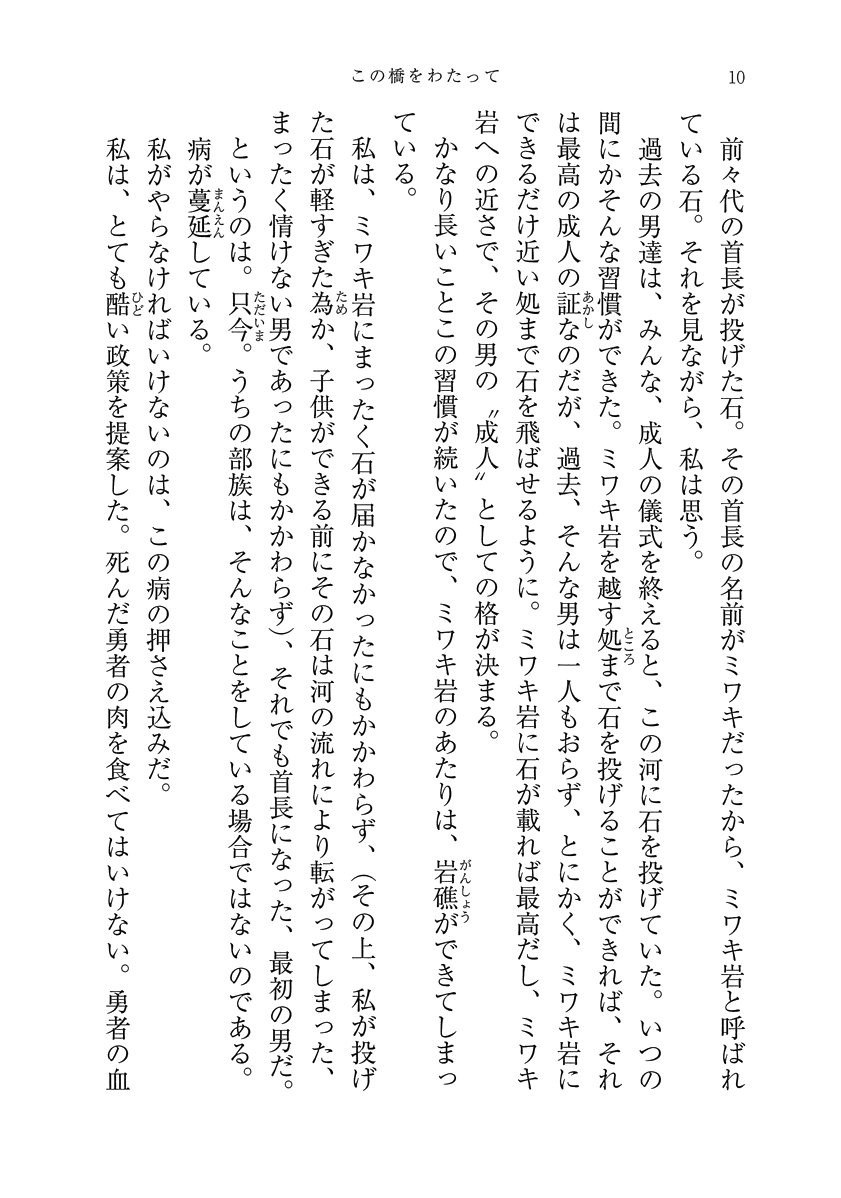 この橋をわたって
10
前々代の首長が投げた石。その首長の名前がミワキだったから、ミワキ岩と呼ばれ
ている石。それを見ながら、私は思う。
過去の男達は、みんな、成人の儀式を終えると、この河に石を投げていた。いつの
間にかそんな習慣ができた。ミワキ岩を越す処ところまで石を投げることができれば、それ
は最高の成人の証あかしなのだが、過去、そんな男は一人もおらず、とにかく、ミワキ岩に
できるだけ近い処まで石を飛ばせるように。ミワキ岩に石が載れば最高だし、ミワキ
岩への近さで、その男の〝成人〟としての格が決まる。
かなり長いことこの習慣が続いたので、ミワキ岩のあたりは、岩礁がんしょうができてしまっ
ている。
私は、ミワキ岩にまったく石が届かなかったにもかかわらず、（その上、私が投げ
た石が軽すぎた為ためか、子供ができる前にその石は河の流れにより転がってしまった、
まったく情けない男であったにもかかわらず）、それでも首長になった、最初の男だ。
というのは。只今ただいま。うちの部族は、そんなことをしている場合ではないのである。
病が蔓延まんえんしている。
私がやらなければいけないのは、この病の押さえ込みだ。
私は、とても酷ひどい政策を提案した。死んだ勇者の肉を食べてはいけない。勇者の血